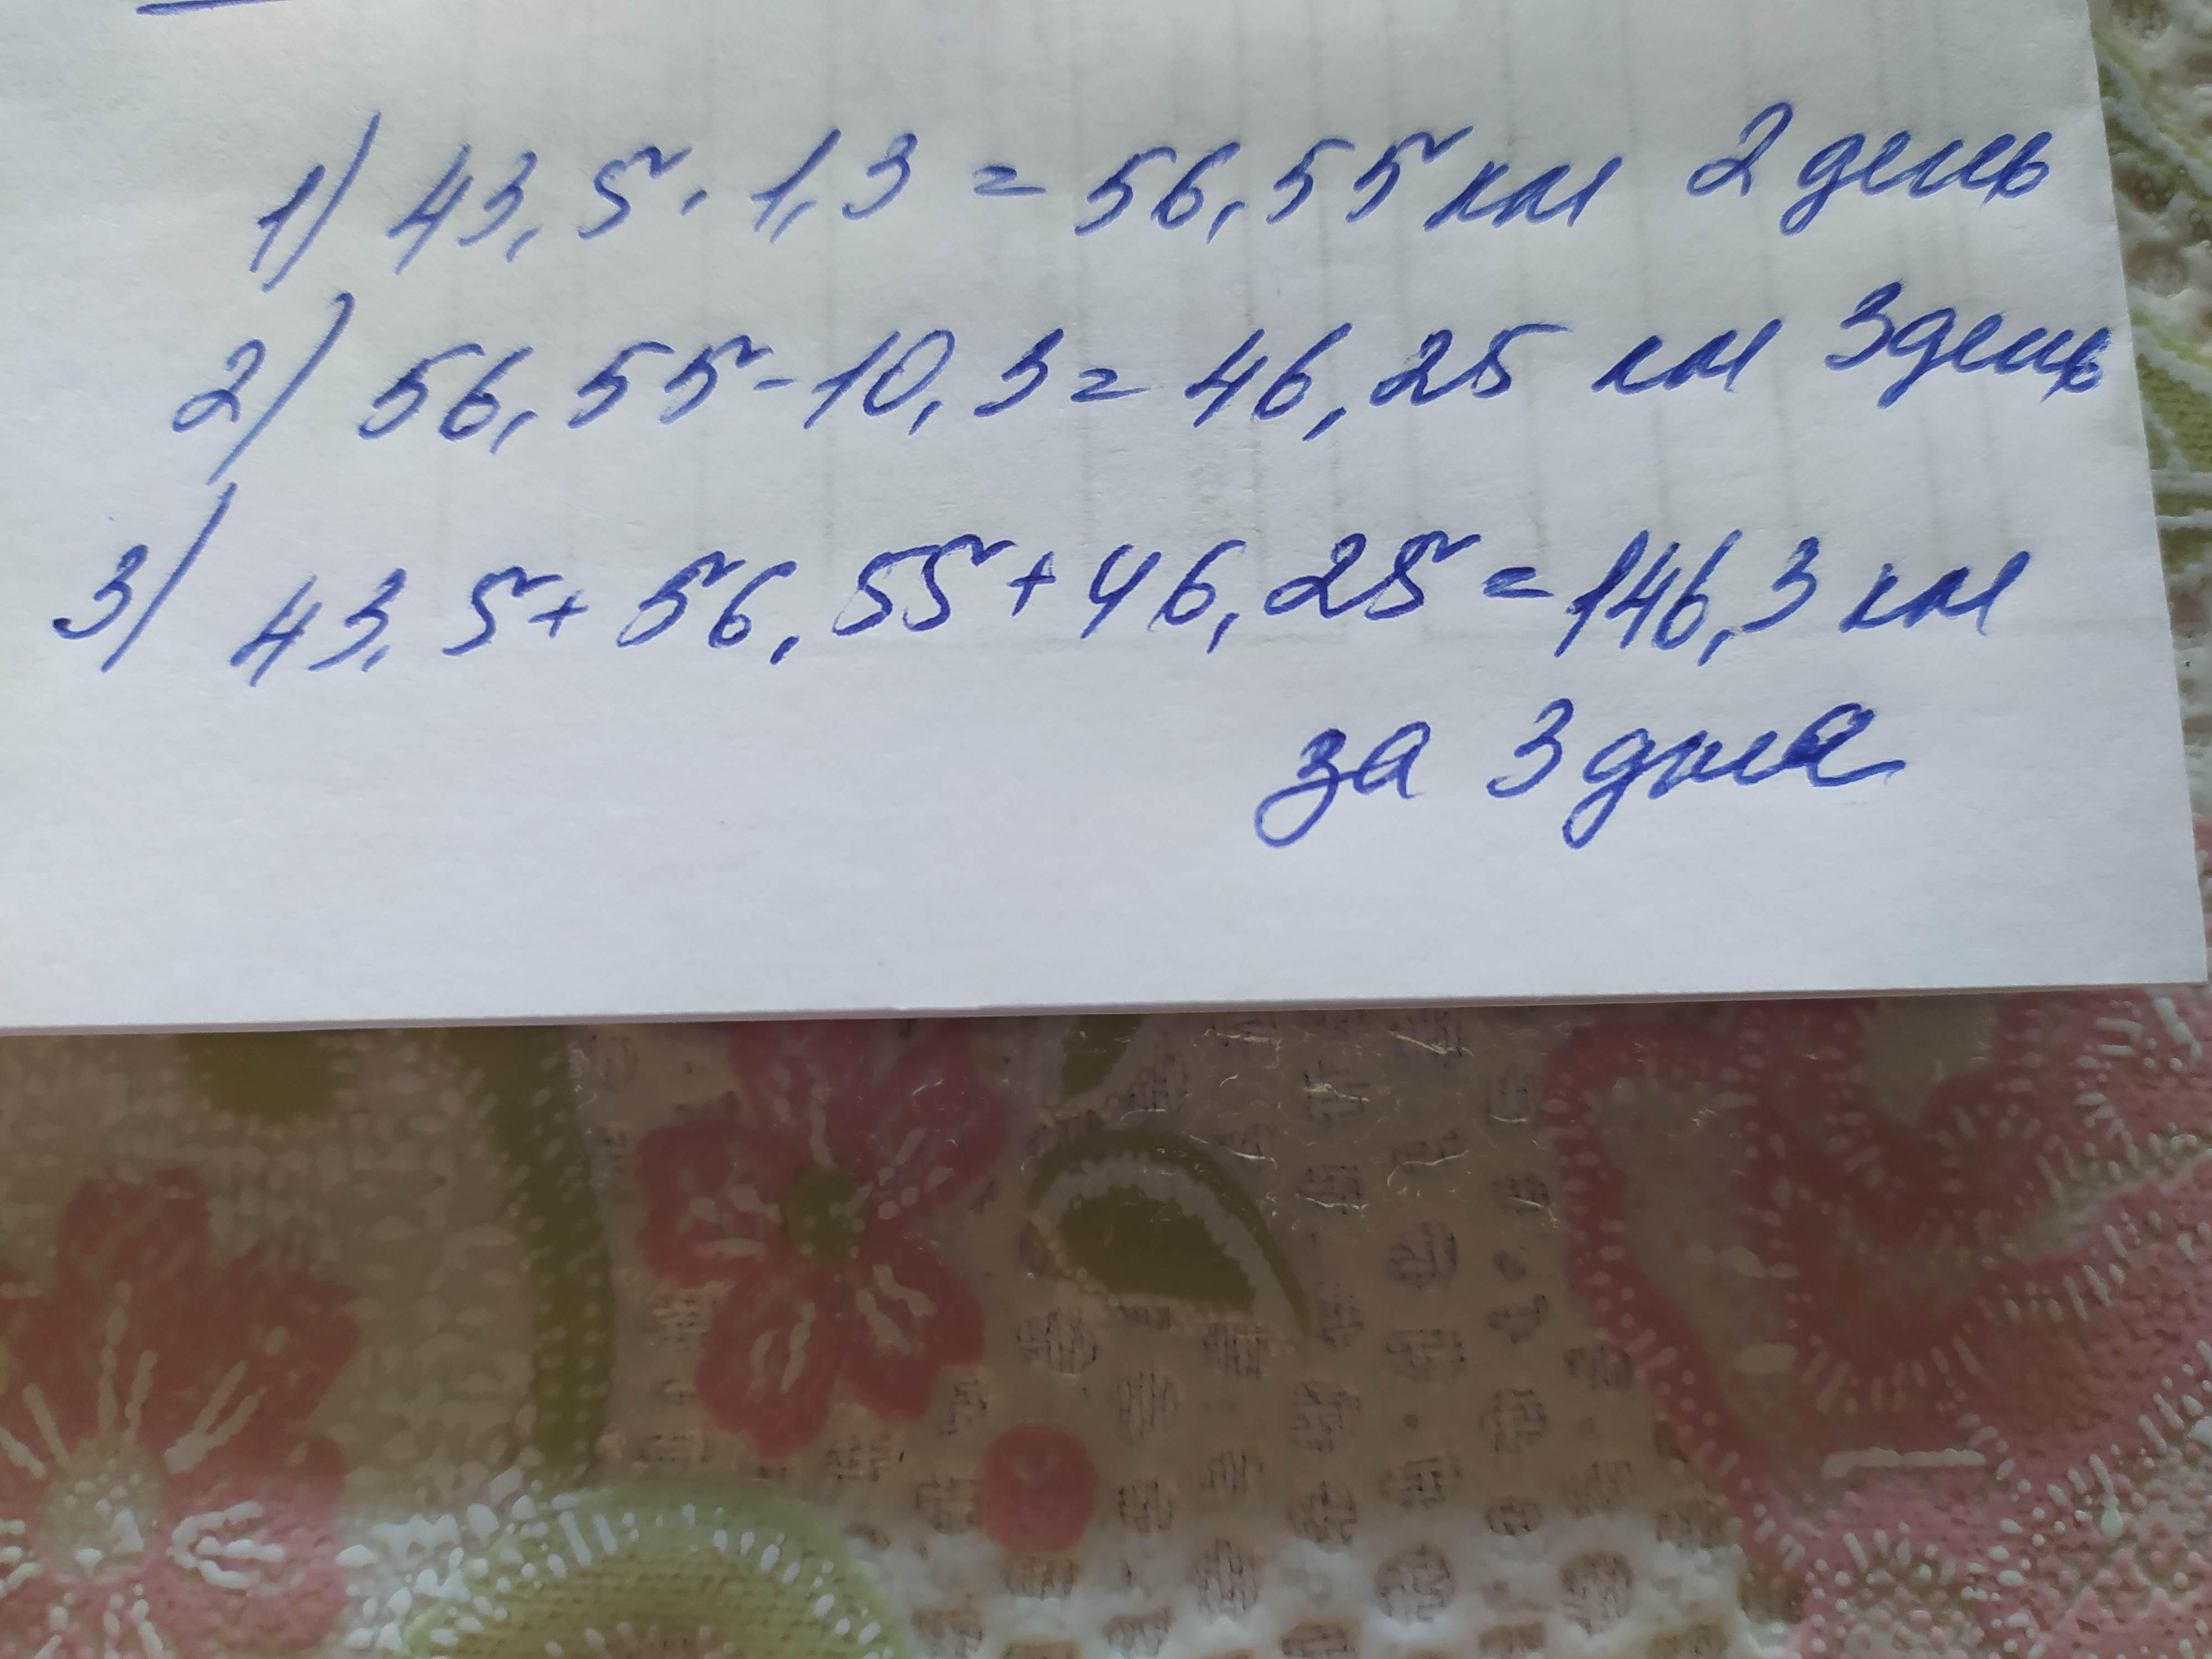 1) 43,5 · 1,3 = 56,55 км 2 день
2) 56,55 - 10,3 = 46,25 км 3 день
3) 43,5 + 56,55 + 46,25 = 146,3 км
за 3 дня